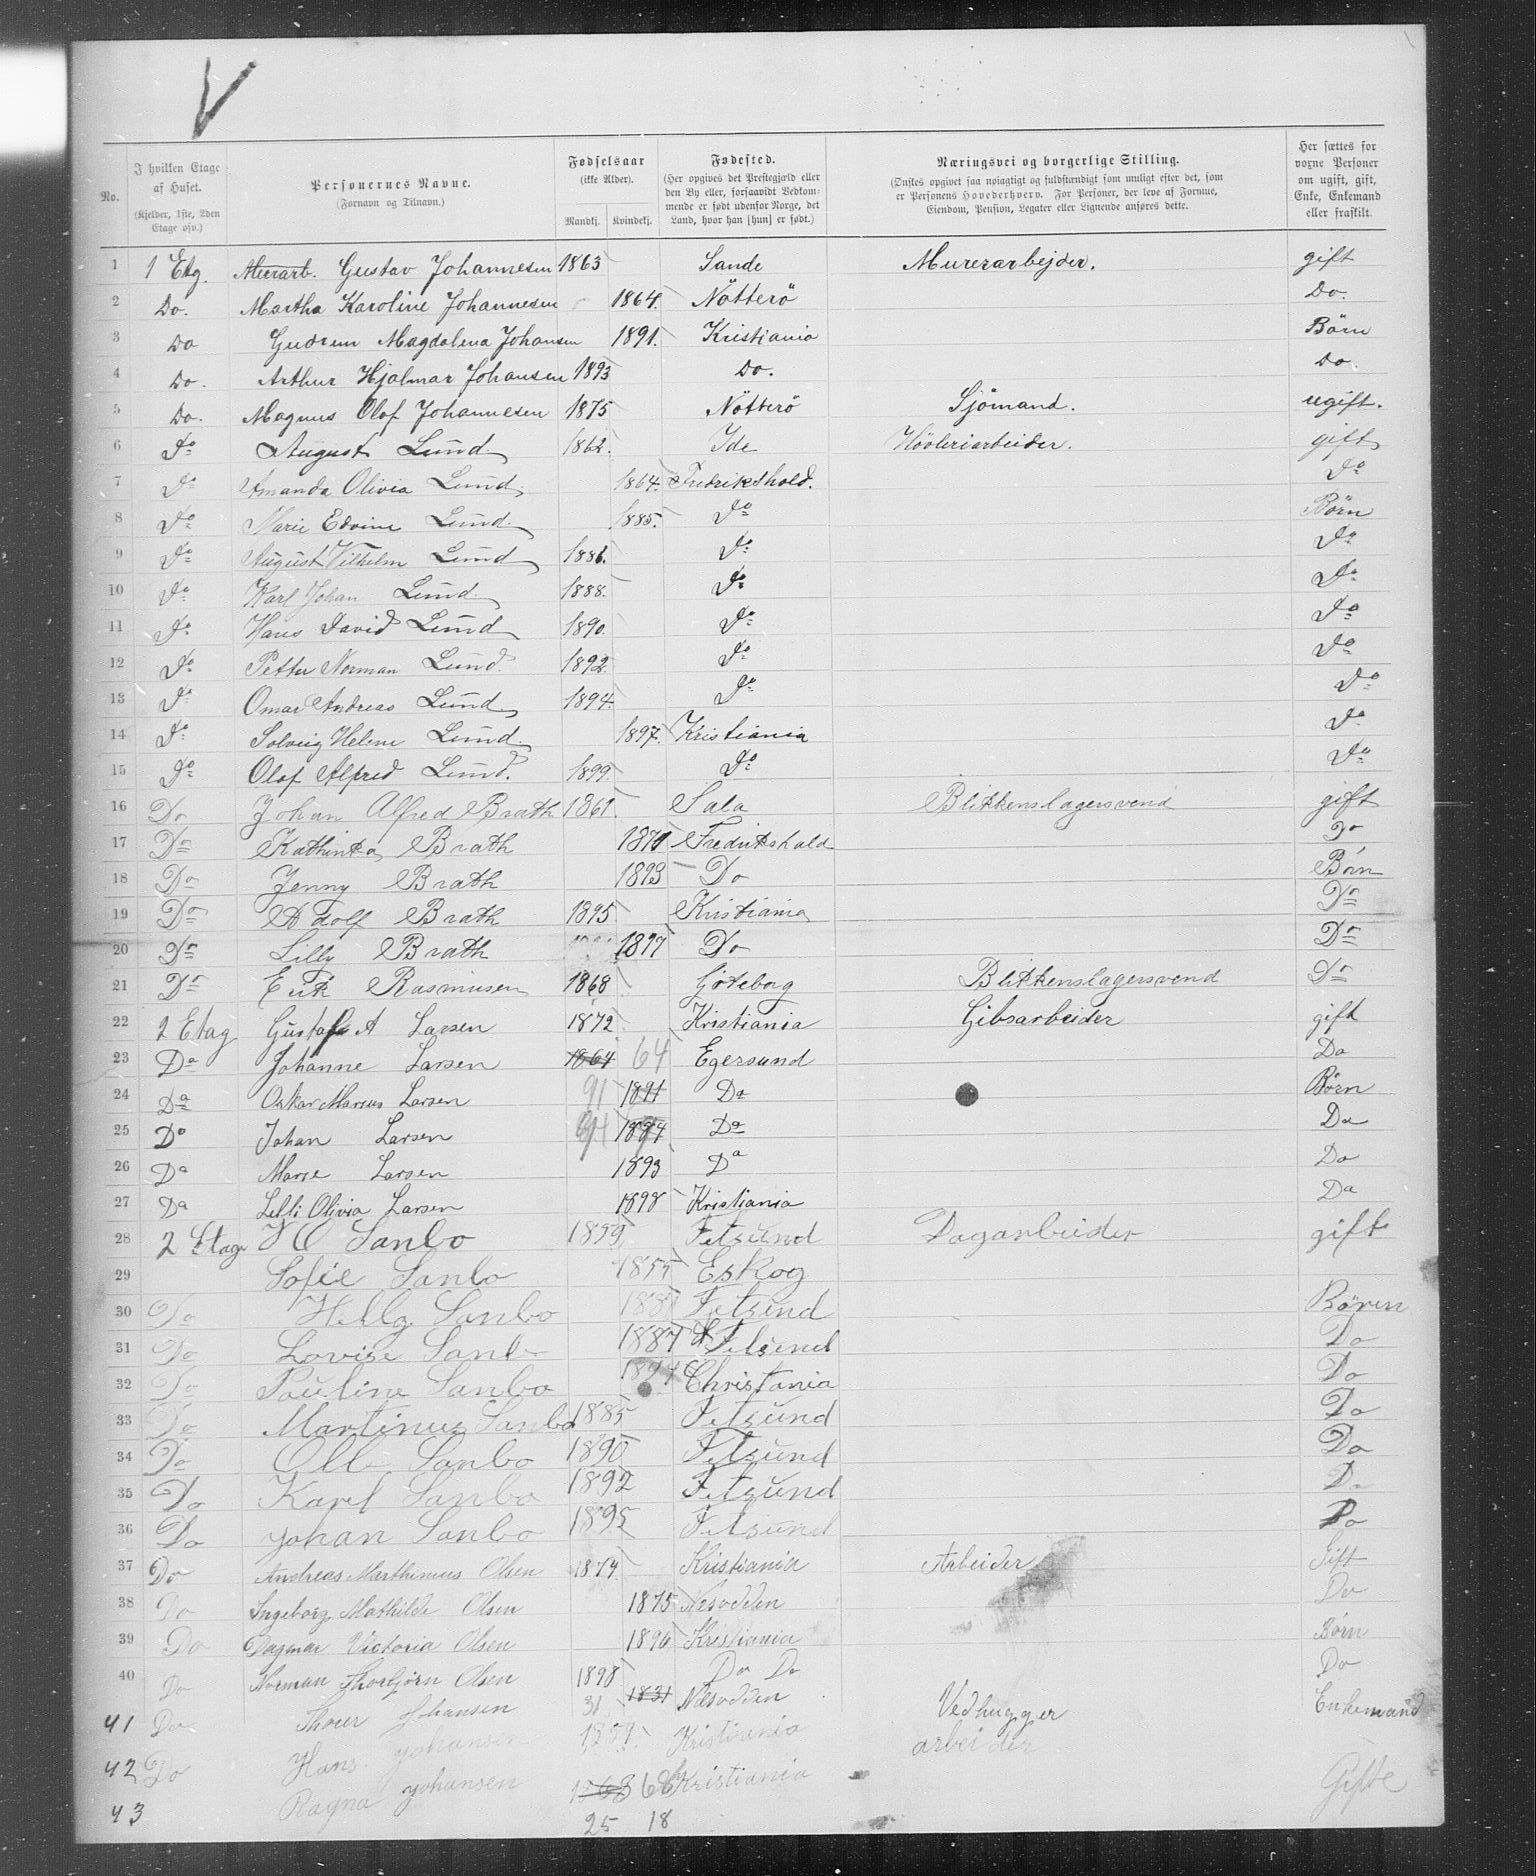 V
No.
I hvilken Etage af Huset.
(Kjelder, 1ste, 2den Etage osv.)
Personernes Navne.
(Fornavn og Tilnavn.)
Fødselsaar
(ikke Alder).
Mandkj. Kvindekj.
Fødested.
(Her opgives det Prestegjæld eller den By eller, forsaavidt Vedkommende er født udenfor Norge, det Land, hvor han [hun] er født.)
Næringsvei og borgerlige Stilling.
(Ønskes opgivet saa nøiagtigt og fuldstændigt som muligt efter det, som er Personens Hovederhverv. For Personer, der leve af Formue, Eiendom, Pension, Legater eller Lignende anføres dette.
Her sættes for voxne Personer om ugift, gift, Enke, Enkemand eller fraskilt.
1 1 Etg. Murarb. Gustav Johannesen 1863 Sande Murerarbejder. gift
2 Do. Martha Karoline Johannesen 1864. Nötterö Do.
3 Do Gudrun Magdalena Johansen 1891. Kristiania Börn
4 Do. Arthur Hjalmar Johansen 1893 Do. Do.
5 Do. Magnus Olof Johannesen 1875 Nötterö Sjömand. ugift.
6 Do August Lund 1862. Ide Hövleriarbeider. gift
7 Do Amanda Olivia Lund 1864. Fredrikshald. Do
8 Do Marie Edvine Lund 1885. Do Börn
9 Do August Vilhelm Lund 1886. Do Do
10 Do Karl Johan Lund 1888. Do Do
11 Do Hans David Lund 1890. Do Do
12 Do Petter Norman Lund 1892. Do Do
13 Do Omar Andreas Lund 1894. Do Do
14 Do Solveig Helene Lund 1897. Kristiania Do
15 Do Olaf Alfred Lund. 1899. Do Do
16 Do Johan Alfred Brath 1861 Sala Blikkenslagersvend gift
17 Do Kathinka Brath 1871 Fredrikshald Do
18 Do Jenny Brath 1893 Do Børn
19 Do Adolf Brath 1895 Kristiania Do
20 Do Lilly Brath 1897 Do Do
21 Do Erik Rasmusen 1868 Göteborg Blikkenslagersvend Do
22 2 Etag Gustaf A Larsen 1872 Kristiania Gibsarbeider gift
23 Da Johanne Larsen 1864 64 Egersund Da
24 Da Oskar Marius Larsen 91 1891 Da Børn
25 Do Johan Larsen 94 1894 Da Da
26 Da Marie Larsen 1893 Da Da
27 Da Lilli Olivia Larsen 1898 Kristiania Da
28 2 Etage Sanbo 1859 Fetsund Dagarbeider gift
29 Sofie Sanbo 1855 Eskog
30 Do Helly Sanbo Fetsund Bören
31 Do Lovise Sanbo 1887 Fetsund Do
32 Do Pauline Sanbo Christania Do
33 Do Martinus Sanbo 1885 Fetsund Do
34 Do Olle Sanbo 1890 Fetsund Do
35 Do Karel Sanbo 1892 Fetsund Do
36 Do Johan Sanbo 1895 Fetsund Do
37 Do Andreas Marthinius Olsen 1874. Kristiania Arbeider Gift
38 Do Ingeborg Mathilde Olsen 1875 Nesodden Do
39 Do Dagmar Victoria Olsen 1896 Kristiania Børn
40 Do Norman Thorbjørn Olsen 1898 Do Do Do
41 Do Thorer Johansen 31 1831 Nesodden Vedhugger Enkemand
42 Do Hans Johansen Kristiania arbeider
43 Ragna Johansen 68 Kristiania Gifte
25 18